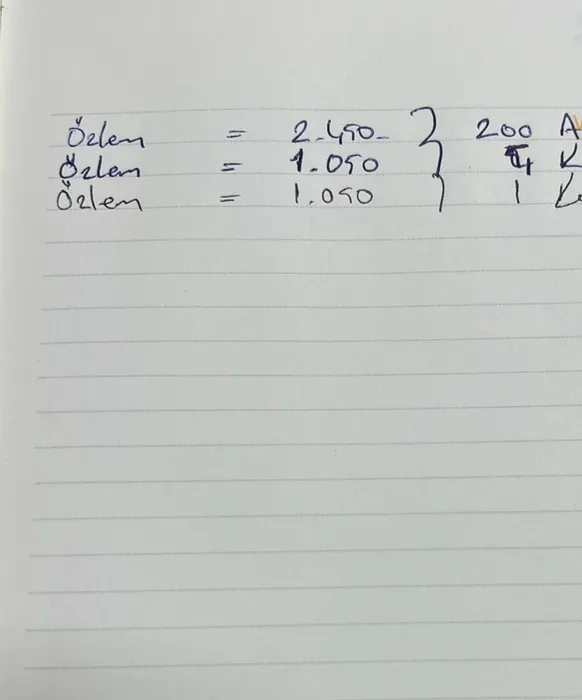 Özlem = 2.450- } 200 A
Özlem = 1.050 } K
Özlem = 1.050 } 1